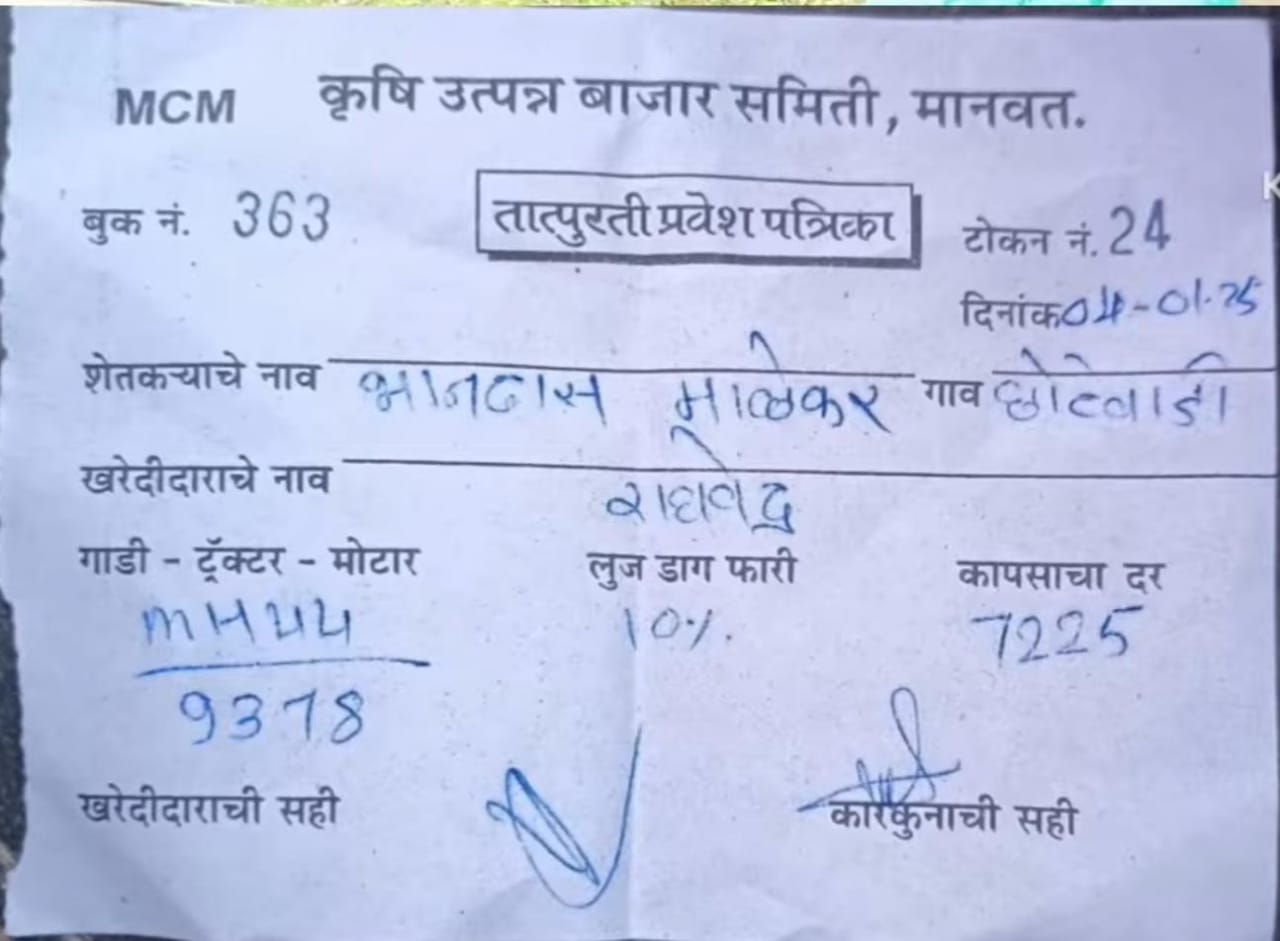 MCM कृषि उत्पन्न बाजार समिती, मानवत.
बुक नं. 363 तात्पुरती प्रवेश पत्रिका टोकन नं. 24
दिनांक 04-01-25
शेतकऱ्याचे नाव भानदास माळेकर गाव छोटेवाडी
खरेदीदाराचे नाव राघवेंद्र
गाडी - ट्रॅक्टर - मोटार लुज डाग फारी कापसाचा दर
MH44 10%. 7225
9378
खरेदीदाराची सही कारकुनाची सही